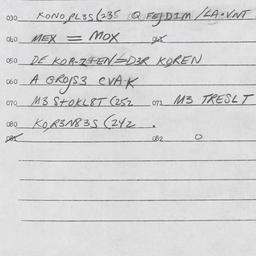 030 KONO,PL3S(235 Q FEJD1M /LA+VNT
040 MEX = MOX
050 DE KOR-Z+EN=D3R KOREN
060 A GROJS3 CVAK
070 M3 S+OKL8T (252 071 M3 TRESLT
080 KO,R3N83S (242 .
082 O